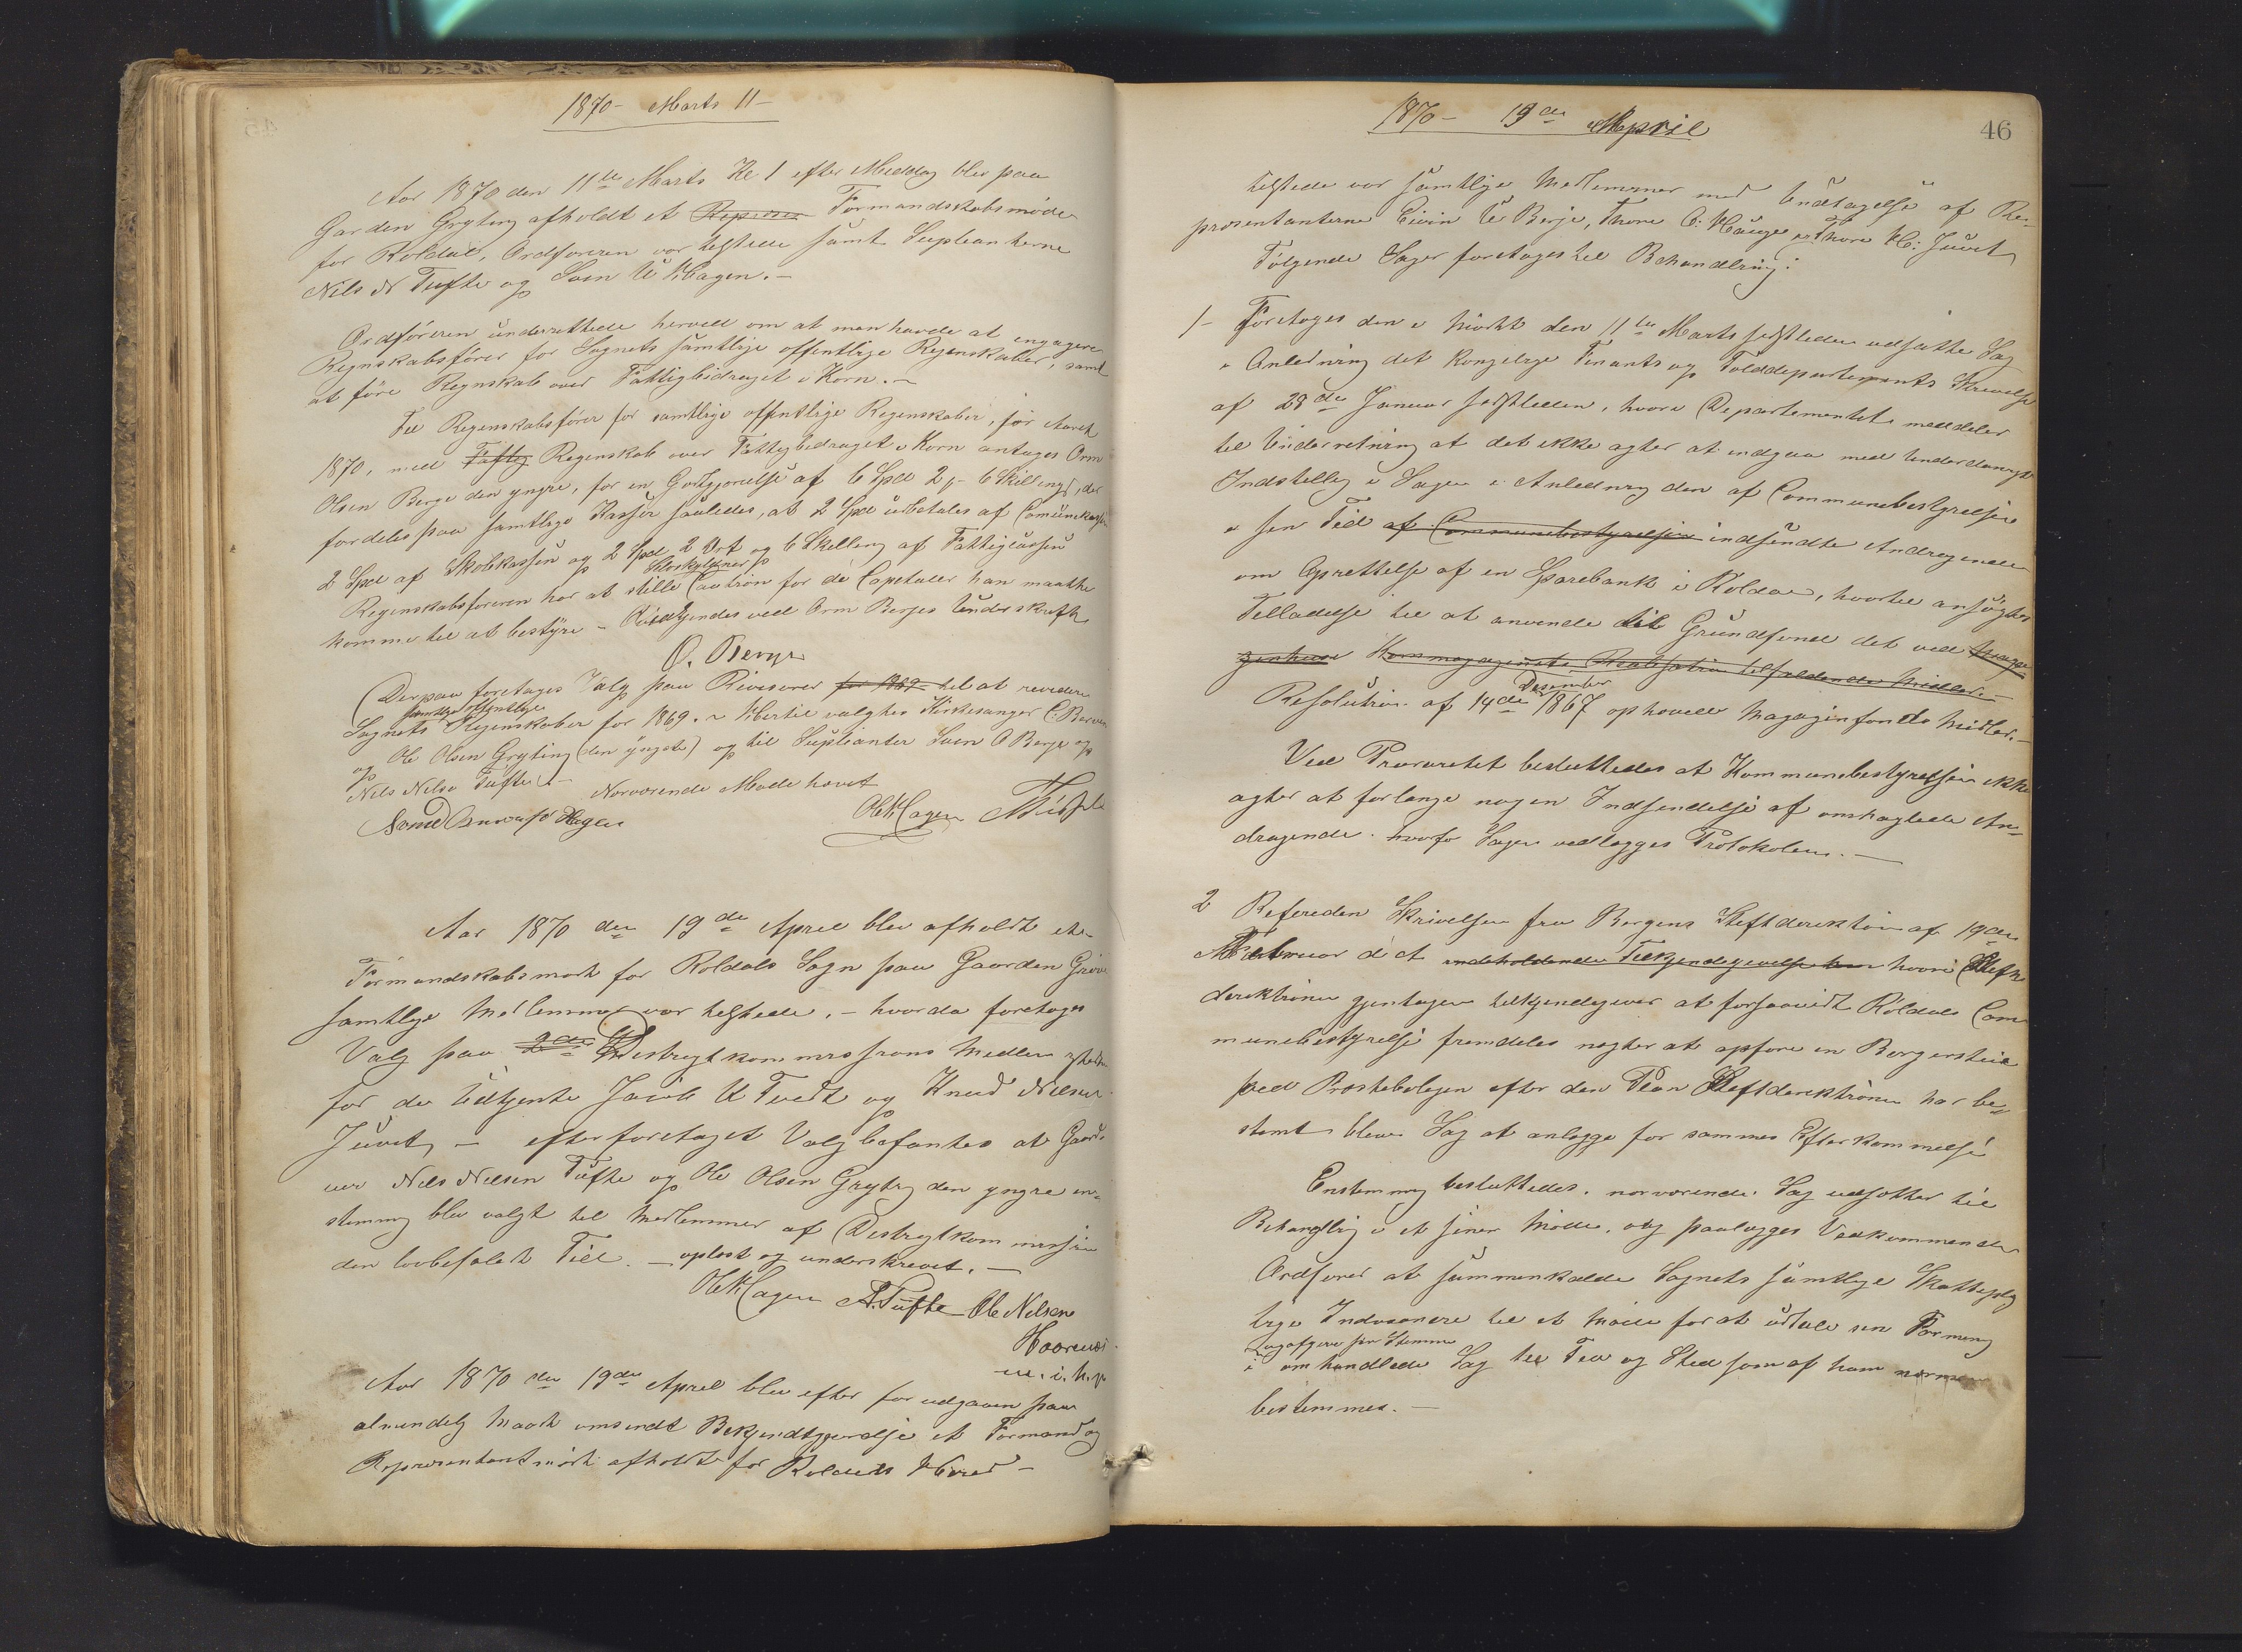 1870 - Marts 11 -
Aar 1870 den 11te Marts Kl 1 efter Middag blev paa
Garden Gryting afholdt et Represen Formandskabsmøde
for Roldal, Ordføreren var tilstede samt Supleanterne
Nils N Tufte og Svin U Hagen. -
Ordføreren underrettede herved om at man havde at engagere
Regnskabsfører for Sognets samtlige offentlige Regenskaber, samt
at føre Regnskab over Fattigbidraget i Korn. -
Til Regenskabsfører for samtlige offentlige Regenskaber, for Aaret
1870, med Fattig Regenskab over Fattigbidraget i Korn antages Orm
Olsen Berge den yngre, for en Godtgjørelse af 6 Spd 2 - 6 Skilling, der
fordeles paa samtlige Kasser saaledes, at 2 Spd udbetales af Comunekassen
2 Spd af Skolekassen og 2 Spd 2 Ort og 6 Skilling af Fattigcassen
Regenskabsføreren har at stille Selvskyldner Caution for de Capitaler han maatte
komme til at bestyre - Vedkjendes ved Orm Berjes Underskrift
O. Berge
Derpaa foretages Valg paa Revisorer for 1869 til at revidere
Sognets samtlige offentlige Regenskaber for 1869. - Hertil valgtes Kirkesanger C.
og Ole Olsen Gryting (den yngste) og til Suplianter Svin O Berge og
Nils Nilsen Tufte. - Nærværende Møde hævet
Svend Hagen OHHagen NTufte
Aar 1870 den 19de April blev afholdt et
Formandskabsmøde for Roldals Sogn paa Gaarden
samtlige Medlemmer var tilstede, - hvorda foretoges
Valg paa 2de Distrigtkommissions Medlemmer
for de Udtjente Jacob K Tvedt og Knud Nilsen
Juvet, - efter foretaget Valg befantes at Gaard-
mr Nils Nilsen Tufte og Ole Olsen Gryting den yngre en-
stemmig blev valgt til Medlemmer af Distrigtkommissionen
den lovbefalede Tid. - oplæst og underskrevet. -
OHHagen N.Tufte Ole Nilsen
m. i. h. p.
Aar 1870 den 19de April blev efter forudgaaen paa
almindelig Maade omsendt Bekjendtgjørelse et Formand og
Represententmøde afholdt for Roldals Hered -
1870 - 19de April
46
tilstede var samtlige Medlemmer med Undtagelse af Re-
presentanterne Eivin U Berje, Thore O: Hauge og Thore H: Juvet
Følgende Sager foretages til Behandling:
1- Foretages den i Mødet den 11te Marts sidstleden udsatte Sag
i Anledning det Kongelige Finants og Tolddepartements Skrivelse
af 28de Januar sidstleden, hvori Departementet meddeler
til Underretning at det ikke agter at indgaa med Underdanigst
Indstilling i Sagen i Anledning den af Communebestyrelsen
i sin Tid af Communebestyrelsen indsendte Andragende
om Oprettelse af en Sparebank i Roldal, hvortil ansøgtes
Tilladelse til at anvende til Grundfond det ved
Kornmagaginets Realisation tilfaldende Midler. -
Resolution af 14de Desember 1867 ophævede Magaginfonds Midler. -
Ved Prøvaretet besluttedes at Kommunebestyrelsen ikke
agter at forlange nogen Indsendelse af omhaglede An-
dragende. hvorfor Sagen vedlægges Protokolen. -
2 Refereden Skrivelsen fra Bergens Stiftdirektion af 19de
Februar d. A. indeholdende Tilkjendegivelse hvori Stift
direktionen gjentagen tilkjendegiver at forsaavidt Roldals Com
munebestyrelse fremdeles negter at opføre en Borgerstue
paa Prestebolegen efter den Plan Stiftdirektionen har be-
stemt bliver Sag at anlægge for sammes Efterkommelse
Enstemmig besluttedes. nærværende Sag udsætter til
Behandling i et senere Møde. og paalægges Vedkommende
Ordfører at sammenkalde Sognets samtlige Skattepleg
tige Indvaanere til et Møde for at udtale sin Formening
og afgive sin Stemme
i omhandlede Sag til Tid og Sted som af ham nærmere
bestemmes. -